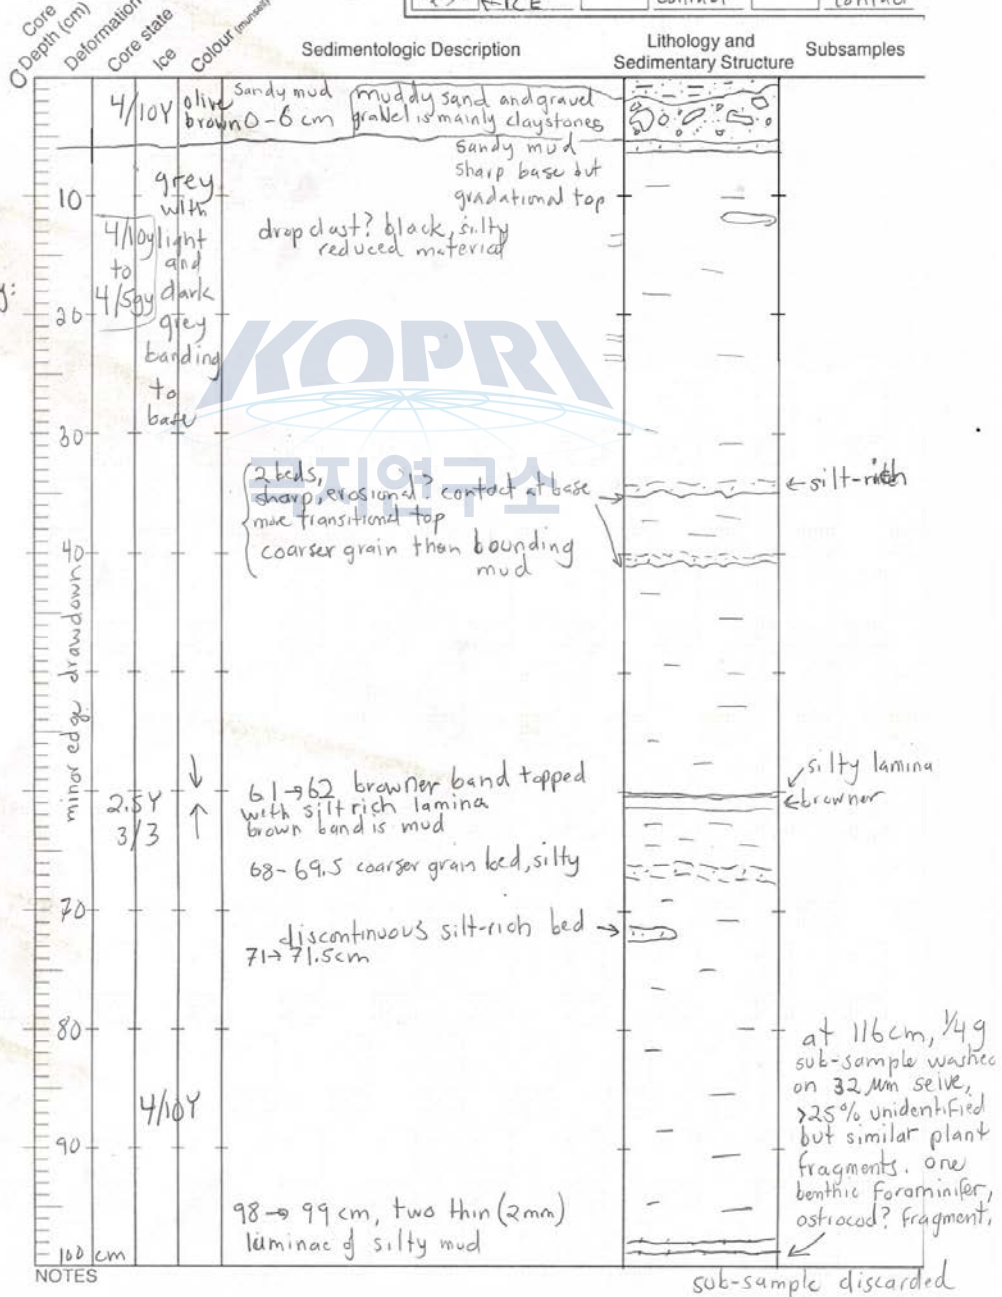 ← ICE
contact
contact
Core
Depth (cm)
Deformation
Core state
Ice
Colour (munsell)
Sedimentologic Description
Lithology and
Sedimentary Structure
Subsamples
0
4/10Y
olive
brown
sandy mud
0-6 cm
muddy sand and gravel
gravel is mainly claystones
sandy mud
sharp base but
gradational top
10
grey
with
light
and
dark
grey
banding
to
base
4/10y
to
4/5gy
dropclast? black, silty
reduced material
y:
20
KOPRI
극지연구소
30
2 beds,
sharp, erosional? contact at base
more transitional top
coarser grain than bounding
mud
← silt-rich
40
minor edge drawdown
2.5Y
3/3
61→62 browner band topped
with silt rich lamina
brown band is mud
silty lamina
← browner
68-69.5 coarser grain bed, silty
70
discontinuous silt-rich bed →
71→71.5cm
80
4/10Y
90
at 116cm, 1/4 g
sub-sample washed
on 32 µm seive,
>25% unidentified
but similar plant
fragments. one
benthic foraminifer,
ostrocod? fragment.
98→99 cm, two thin (2mm)
laminae of silty mud
100 cm
NOTES
sub-sample discarded